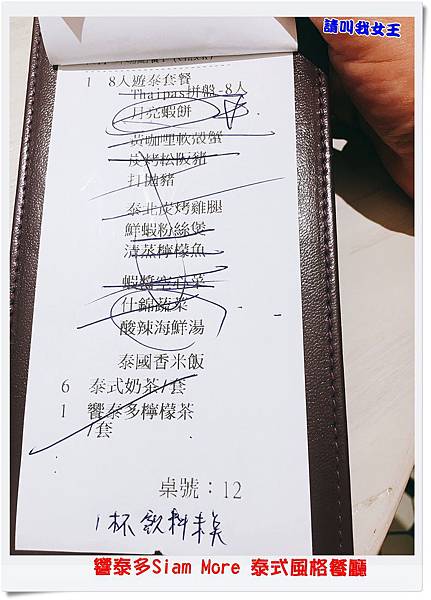 請叫我女王
1 8人遊泰套餐
Thaipas拼盤-8人
月亮蝦餅
黃咖哩軟殼蟹
炭烤松阪豬
打拋豬
泰北炭烤雞腿
鮮蝦粉絲煲
清蒸檸檬魚
蝦醬空心菜
什錦蔬菜
酸辣海鮮湯
泰國香米飯
6 泰式奶茶/套
1 饗泰多檸檬茶
/套
桌號：12
1杯飲料未
饗泰多Siam More 泰式風格餐廳